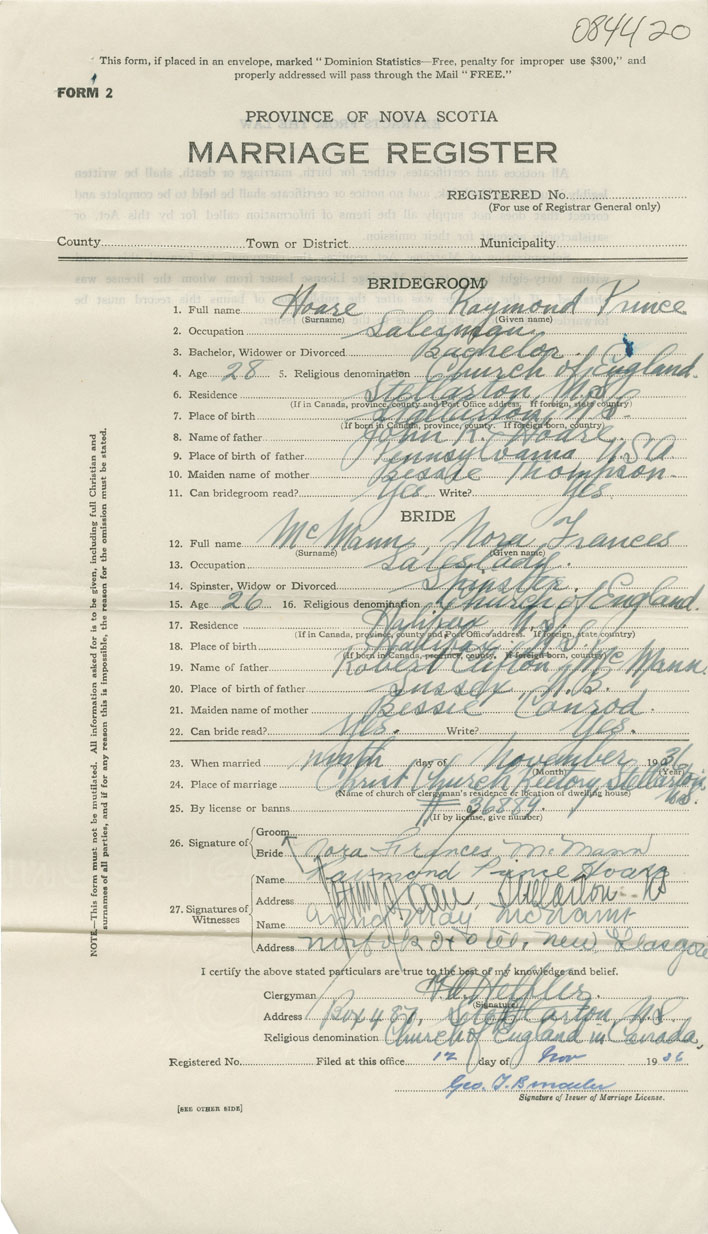 084420
This form, if placed in an envelope, marked "Dominion Statistics—Free, penalty for improper use $300," and
properly addressed will pass through the Mail "FREE."
FORM 2
PROVINCE OF NOVA SCOTIA
MARRIAGE REGISTER
REGISTERED No.
(For use of Registrar General only)
County Town or District Municipality
BRIDEGROOM
1. Full name Hoare Raymond Prince
(Surname) (Given name)
2. Occupation Salesman
3. Bachelor, Widower or Divorced Bachelor
4. Age 28 5. Religious denomination Church of England.
6. Residence Stellarton N.S.
(If in Canada, province, county and Post Office address. If foreign, state country)
7. Place of birth Stellarton N.S.
(If born in Canada, province, county. If foreign born, country)
8. Name of father John R. Hoare
9. Place of birth of father Pennsylvania U.S.A.
10. Maiden name of mother Bessie Thompson
11. Can bridegroom read? Yes Write? Yes
BRIDE
12. Full name McMann, Nora Frances
(Surname) (Given name)
13. Occupation Saleslady.
14. Spinster, Widow or Divorced Spinster.
15. Age 26 16. Religious denomination Church of England.
17. Residence Halifax N.S.
(If in Canada, province, county and Post Office address. If foreign, state country)
18. Place of birth Halifax N.S.
(If born in Canada, province, county. If foreign born, country)
19. Name of father Robert Clifton McMann.
20. Place of birth of father Sussex N.B.
21. Maiden name of mother Bessie Conrod
22. Can bride read? Yes. Write? Yes.
23. When married ninth day of November 1936
(Month) (Year)
24. Place of marriage Christ Church Rectory, Stellarton N.S.
(Name of church or clergyman's residence or location of dwelling house)
25. By license or banns # 36889.
(If by license, give number)
26. Signature of Groom
Bride Nora Frances McMann
Raymond Prince Hoare
27. Signatures of Witnesses
Name
Address Stellarton NS
Name Anna May
Address Norfolk Hotel, New Glasgow
I certify the above stated particulars are true to the best of my knowledge and belief.
Clergyman
(Signature)
Address Box 487, Stellarton N.S.
Religious denomination Church of England in Canada,
Registered No. Filed at this office 12 day of Nov 1936
Geo. T.
Signature of Issuer of Marriage License.
[SEE OTHER SIDE]
NOTE.—This form must not be mutilated. All information asked for is to be given, including full Christian and
surnames of all parties, and if for any reason this is impossible, the reason for the omission must be stated.